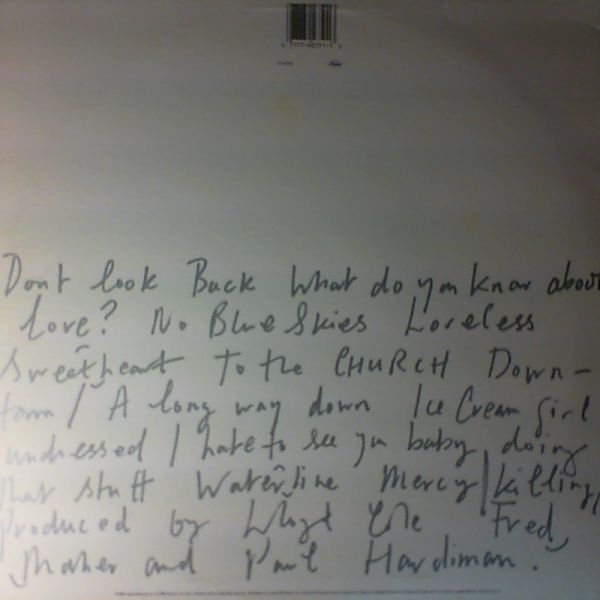 Dont look Back What do you know about
love? No Blue Skies Loveless
Sweetheart To the CHURCH Down-
town / A long way down Ice Cream Girl
undressed / hate to see you baby doing
that stuff Waterline Mercy / killing,
Produced by Lloyd Cole Fred
Maher and Paul Hardiman.